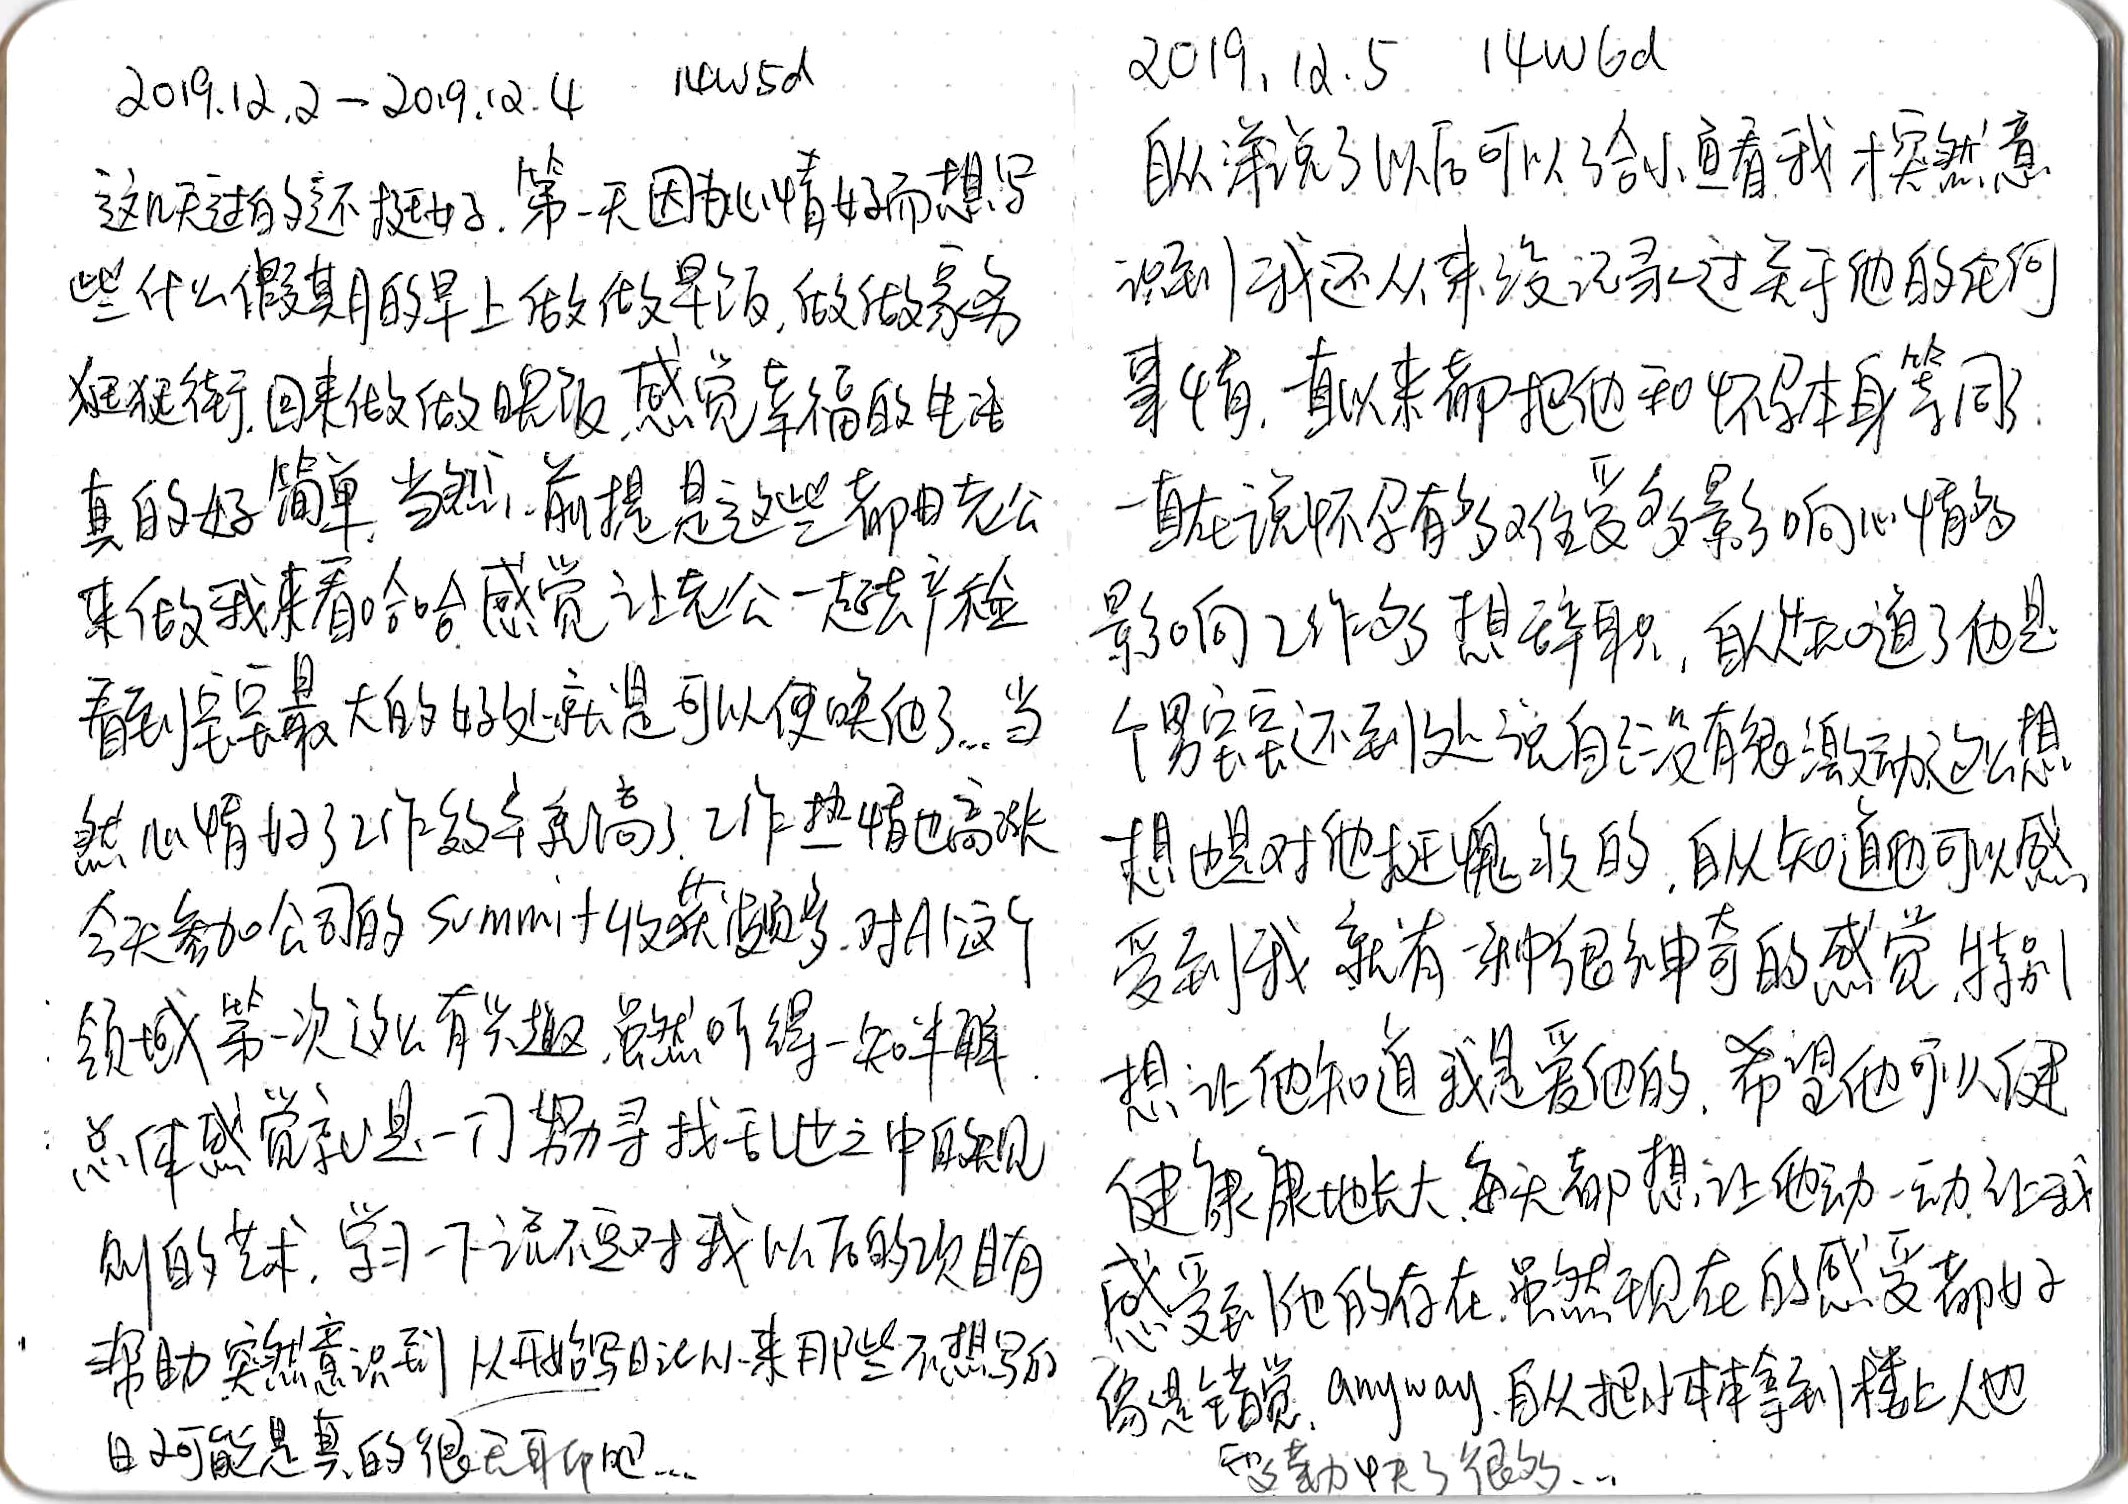 2019.12.2－2019.12.4 14w5d
这几天过的还挺好.第一天因为心情好而想写
些什么假期的早上做做早饭,做做家务
逛逛街,回来做做晚饭,感觉幸福的生活
真的好简单,当然,前提是这些都由老公
来做我来看哈哈感觉让老公一起去产检
看到宝宝最大的好处就是可以使唤他了...当
然心情好了工作效率就高了.工作热情也高涨
今天参加公司的summit收获颇多.对AI这个
领域第一次这么有兴趣.虽然听得一知半解.
总体感觉就是一门努力寻找乱世之中的规
则的艺术.学习一下说不定对我以后的项目有
帮助突然意识到从开始写日记以来那些不想写的
日子可能是真的很无聊吧...
2019.12.5 14w6d
自从洋说了以后可以给小鱼看我才突然意
识到我还从来没记录过关于他的任何
事情,一直以来都把他和怀孕本身等同了.
一直在说怀孕有多难受多影响心情多
影响工作多想辞职,自从知道了他是
个男宝宝还到处说自己没有很激动这么想
想也是对他挺愧疚的,自从知道他可以感
受到我就有一种很神奇的感觉,特别
想让他知道我是爱他的,希望他可以健
健康康地长大,每天都想让他动一动,让我
感受到他的存在.虽然现在的感受都好
像是错觉.anyway.自从把小本本拿到楼上人也
变勤快了很多...